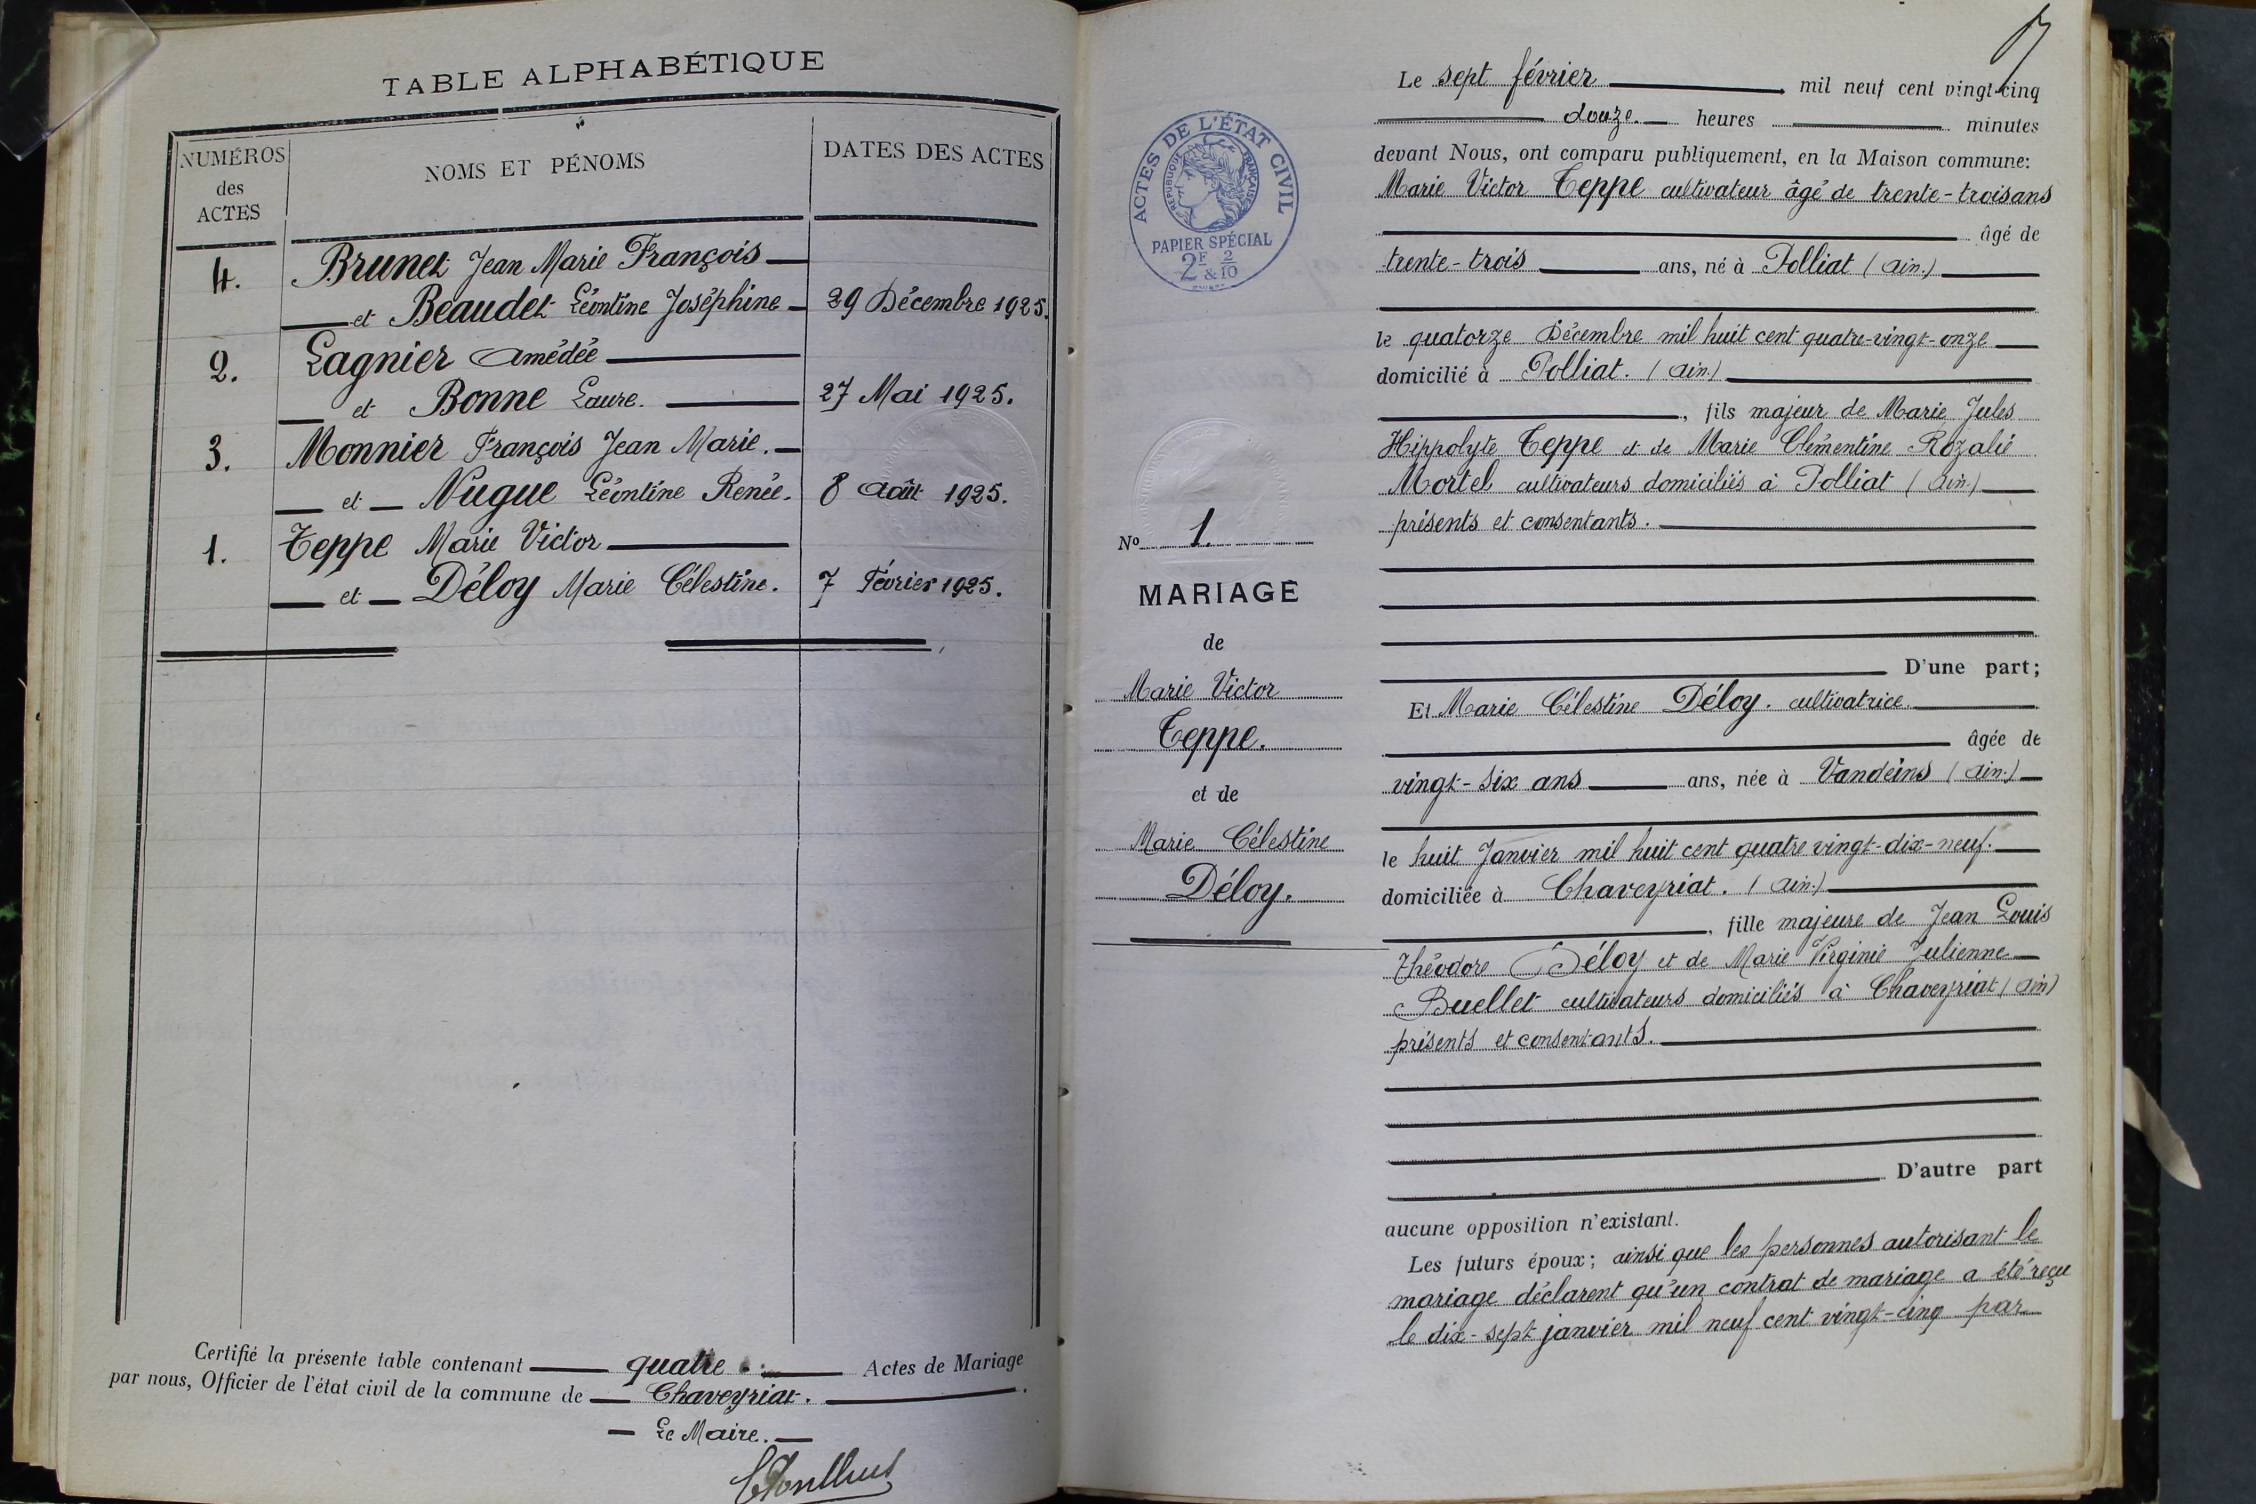 TABLE ALPHABÉTIQUE
NUMÉROS des ACTES
NOMS ET PÉNOMS
DATES DES ACTES
4. Brunet Jean Marie François
et Beaudet Léontine Joséphine 29 Décembre 1925.
2. Lagnier Amédée
et Bonne Laure. 27 Mai 1925.
3. Monnier François Jean Marie.
et Nugue Léontine Renée. 8 Août 1925.
1. Teppe Marie Victor
et Déloy Marie Célestine. 7 Février 1925.
Certifié la présente table contenant quatre Actes de Mariage
par nous, Officier de l'état civil de la commune de Chaveyriat.
Le Maire.
ACTES DE L'ÉTAT CIVIL
RÉPUBLIQUE FRANÇAISE
PAPIER SPÉCIAL
2F & 2/10
No 1.
MARIAGE
de
Marie Victor
Teppe.
et de
Marie Célestine
Déloy.
Le sept février mil neuf cent vingt-cinq
douze. heures minutes
devant Nous, ont comparu publiquement, en la Maison commune:
Marie Victor Teppe cultivateur âgé de trente-trois ans
âgé de
trente-trois ans, né à Polliat (Ain.)
le quatorze Décembre mil huit cent quatre-vingt-onze
domicilié à Polliat. (Ain.)
, fils majeur de Marie Jules
Hippolyte Teppe et de Marie Clémentine Rozalie
Mortel cultivateurs domiciliés à Polliat (Ain.)
présents et consentants.
D'une part;
Et Marie Célestine Déloy. cultivatrice.
âgée de
vingt-six ans ans, née à Vandeins (Ain.)
le huit Janvier mil huit cent quatre vingt-dix-neuf.
domiciliée à Chaveyriat. (Ain.)
, fille majeure de Jean Louis
Théodore Déloy et de Marie Virginie Julienne
Buellet cultivateurs domiciliés à Chaveyriat (Ain)
présents et consentants.
D'autre part
aucune opposition n'existant.
Les futurs époux; ainsi que les personnes autorisant le
mariage déclarent qu'un contrat de mariage a été reçu
le dix-sept janvier mil neuf cent vingt-cinq par